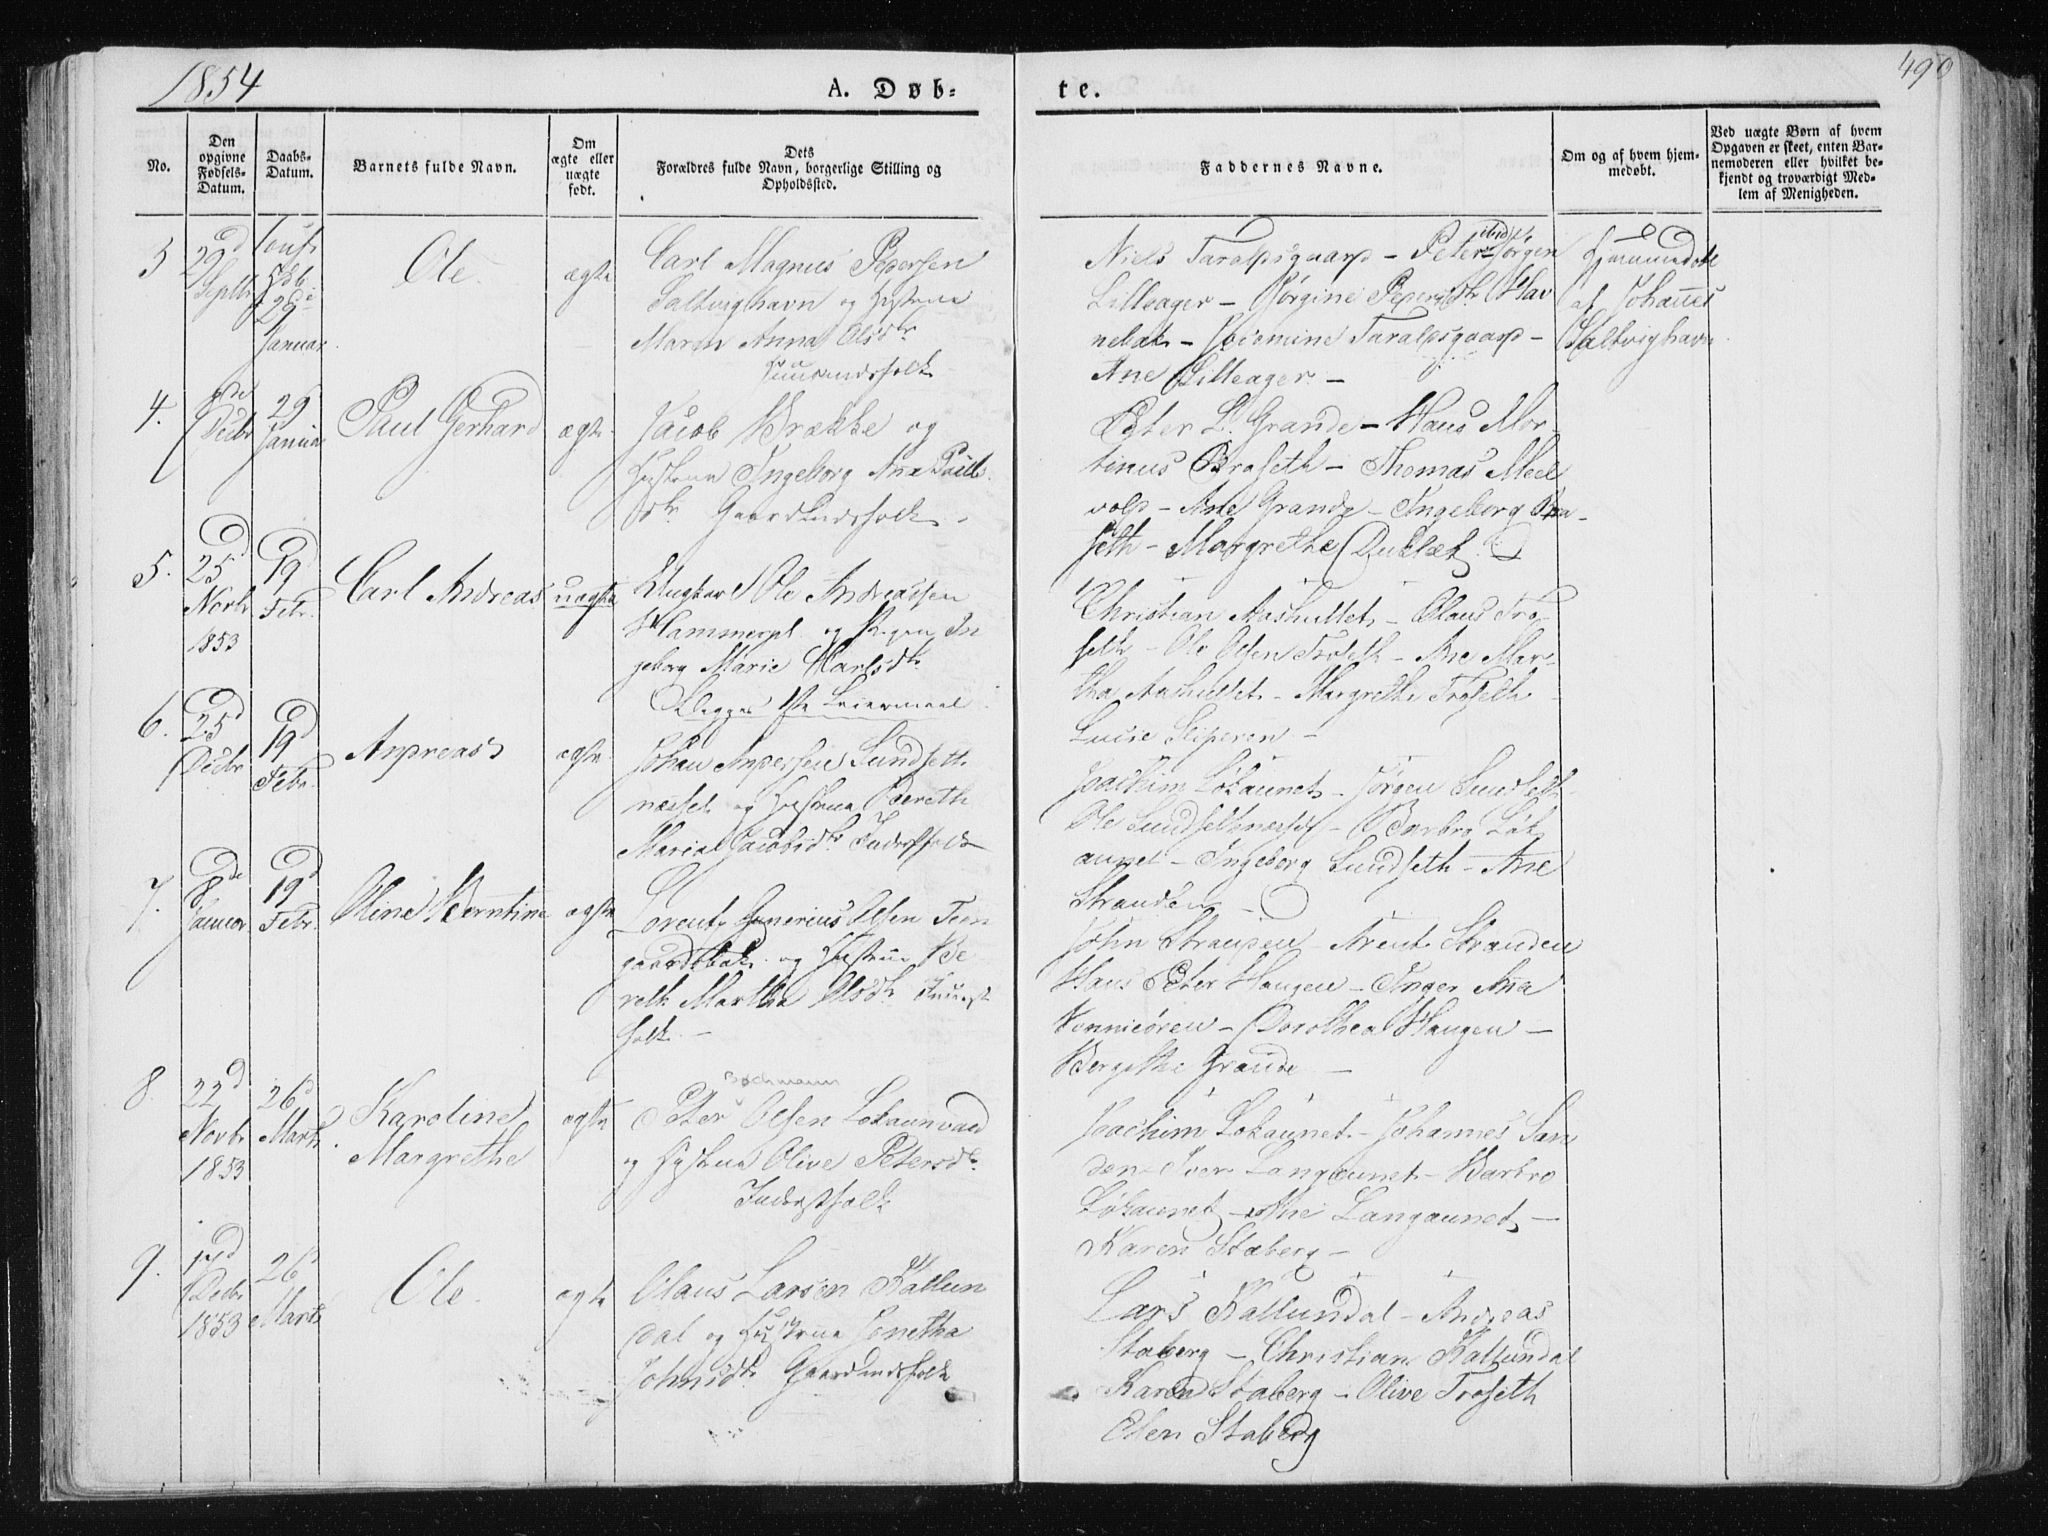 1854
A. Døb-
te.
490
No.
Den opgivne Fødsels-Datum.
Daabs-Datum.
Barnets fulde Navn.
Om ægte eller uægte født.
Dets Forældres fulde Navn, borgerlige Stilling og Opholdssted.
Faddernes Navne.
Om og af hvem hjem-medøbt.
Ved uægte Børn af hvem Opgaven er skeet, enten Bar-nemoderen eller hvilket be-kjendt og troværdigt Med-lem af Menigheden.
3
29d Septbr
29de Januar
Ole
ægte
Carl Magnus Pedersen
Saltvighavn og Hustrue
Maren Anna Olsdr
Huusmandsfolk
Niels Taraldsgaard - Peter ibid, Jørgen
Lilleager - Jørgine Pedersdr Hav
- Taraldsgaard -
Ane Lilleager -
Hjemmedøbt
af Johannes
Saltvighavn
4.
Decbr
29 Januar
Paul Gerhard
ægte
Jacob Brække og
Hustrue Ingeborg Ana Pauls
dr. Gaardmandsfolk -
Peter L. Grande - Hans Mor
tinus Braseth - Thomas Meel
vold - Ane Grande - Ingeborg Bra
seth - Margrethe
5.
25d Novbr 1853
19d Febr.
Carl Andreas
uægte
Ungkarl Ole Andreassen
Hammerpl. og Pigen In
geborg Marie Karlsdr
Begges 1ste Leiermaal
Christian Aashullet - Olaus Tro
seth - Ole Olsen Troseth - Ane Mar
tha Aashullet - Margrethe Troseth
Lucie -
6.
25d Decbr
19d Febr.
Andreas
ægte
Johan Andersen Sundseth
næsset og Hustrue Bereth
Maria Jacobsdr Inderstfolk
Joachim Løkaunet - Jørgen Sundseth
Ole Sundsethnæsset - Barbro Løk
aunet - Ingeborg Sundseth - Ane
Stranden -
7.
8de Januar
19d Febr.
Oline Berntine
ægte
Lorents Olsen
og Hustrue Be
reth Martha Olsdr Inderst
folk -
John Stranden - Arent Stranden
Hans Peter Haugen - Inger Ana
- Dorothea Haugen -
Bergithe Grande -
8
22d Novbr 1853
26d Marts
Karoline
Margrethe
ægte
Bachmann
Peter Olsen Løkaunvald
og Hustrue Olive Petersdr
Inderstfolk
Joachim Løkaunet - Johannes San
den - Iver Langaunet - Barbro
Løkaunet - Langaunet -
Karen Staberg -
9.
17d Decbr 1853
26d Marts
Ole
ægte
Olaus Larsen Kallun
dal og Hustrue Jonetha
Johnsdr Gaardmandsfolk
Lars Kallundal - Andreas
Staberg - Christian Kallundal
Karen Staberg - Olive Troseth
Elen Staberg